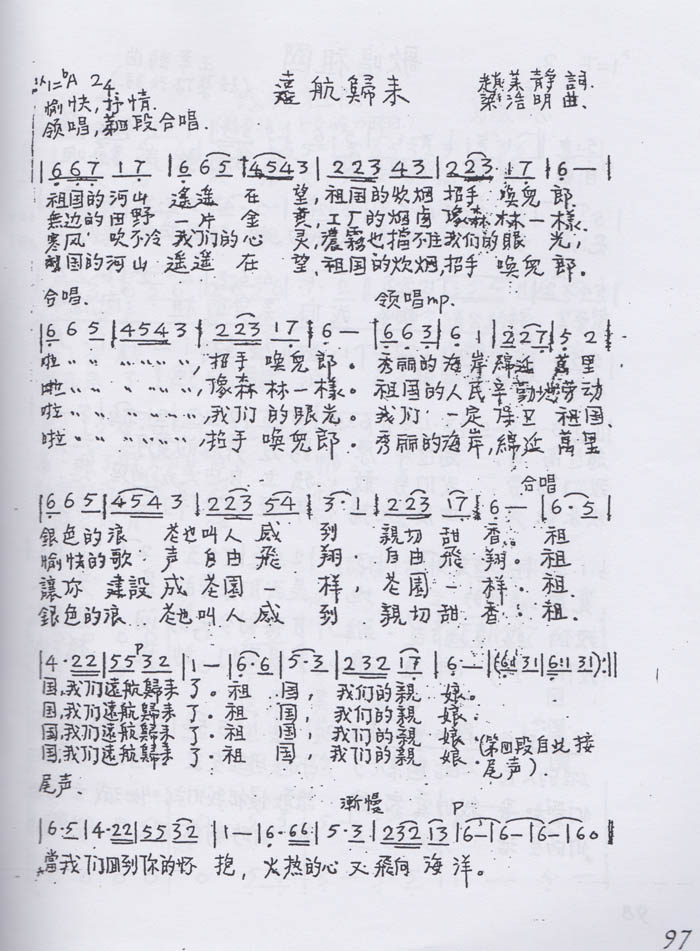 1=ᵇA 2/4 遠航歸来 趙萊静 詞.
愉快, 抒情. 梁浩明 曲.
领唱, 第四段合唱.
|6 6 7 1 7 |6 6 5 |4 5 4 3 |2 2 3 4 3 |2 2 3 1 7 |6 — |
祖国的河山 遥遥 在 望, 祖国的炊烟 招手 唤兒 郎.
無边的田野 一片 金 黄, 工厂的烟囱 像森 林一 樣.
寒风 吹不冷 我们的心 灵, 濃霧也擋不住我们的眼 光,
祖国的河山 遥遥 在 望, 祖国的炊烟, 招手 唤兒 郎.
合唱. 领唱mp.
|6 6 5 |4 5 4 3 |2 2 3 1 7 |6 — |6 6 3 |6 1 |2 2 7 |5 2
啦 〃 〃 〃〃〃〃, 招手 唤兒 郎. 秀丽的 海岸 綿延 萬里
啦 〃 〃 〃〃〃〃, 像森 林一 樣. 祖国的人民 辛勤地劳动
啦 〃 〃 〃〃〃〃, 我们 的眼 光. 我们 一定 保卫 祖国.
啦 〃 〃 〃〃〃〃, 招手 唤兒 郎. 秀丽的海岸, 綿延 萬里
合唱
|6 6 5 |4 5 4 3 |2 2 3 5 4 |3 · 1 |2 2 3 1 7 |6 — |6 · 5 |
銀色的浪 花也叫人 感 到 親切 甜 香. 祖
愉快的歌 声 自由 飛 翔. 自由 飛 翔. 祖
讓你 建設 成 花园 一 样, 花园 一 样. 祖
銀色的浪 花也叫人 感 到 親切 甜 香. 祖
|4 · 2 2 |5 5 3 2 |1 — |6 · 6 |5 · 3 |2 3 2 1 7 |6 — |(6 6 1 3 1 |6 · 1 3 1) :||
国, 我们遠航歸来 了. 祖 国, 我们的親 娘.
国, 我们遠航歸来 了. 祖 国, 我们的親 娘.
国, 我们遠航歸来 了. 祖 国, 我们的親 娘.
国, 我们遠航歸来 了. 祖 国, 我们的親 娘. (第四段自此接
尾声. 尾声)
渐慢 P
|6 · 5 |4 · 2 2 |5 5 3 2 |1 — |6 · 6 6 |5 · 3 |2 3 2 1 3 |6 — |6 — |6 — |6 0 ||
當我们回到你的怀 抱, 火热的心 又飛向 海洋.
97